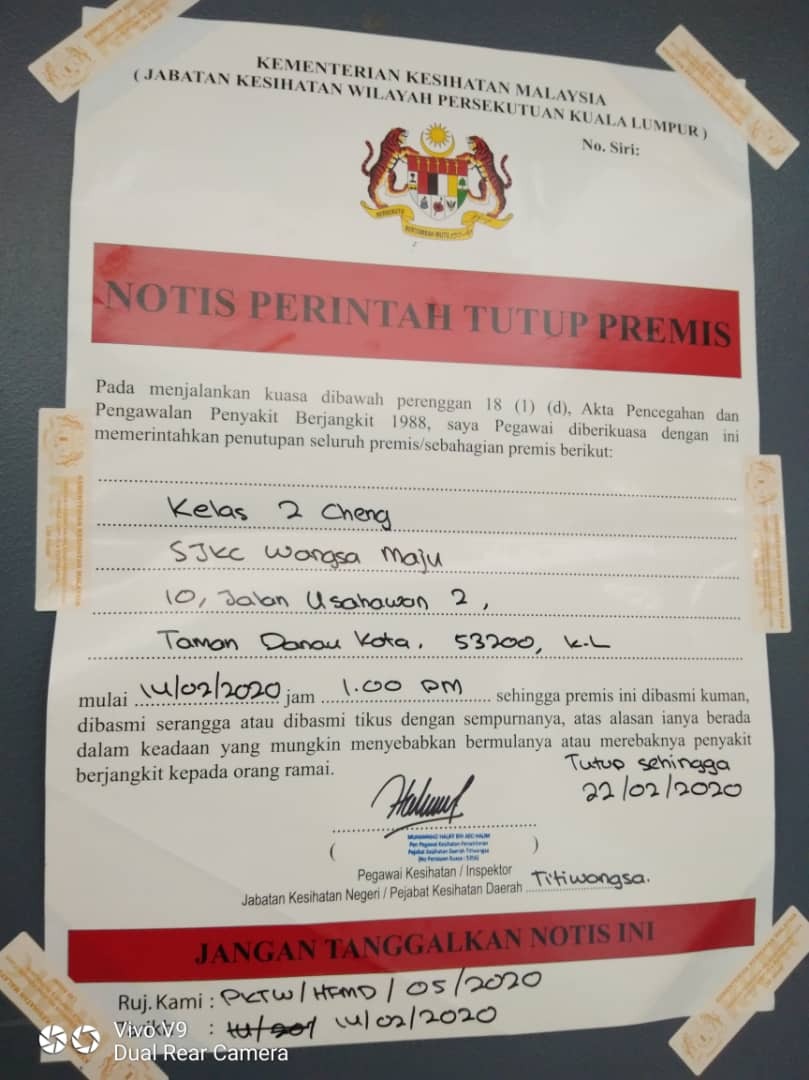 KEMENTERIAN KESIHATAN MALAYSIA
( JABATAN KESIHATAN WILAYAH PERSEKUTUAN KUALA LUMPUR )
No. Siri:
NOTIS PERINTAH TUTUP PREMIS
Pada menjalankan kuasa dibawah perenggan 18 (1) (d), Akta Pencegahan dan
Pengawalan Penyakit Berjangkit 1988, saya Pegawai diberikuasa dengan ini
memerintahkan penutupan seluruh premis/sebahagian premis berikut:
Kelas 2 Cheng
SJKC Wangsa Maju
10, Jalan Usahawan 2,
Taman Danau Kota, 53200, K.L
mulai 14/02/2020 jam 1.00 PM sehingga premis ini dibasmi kuman,
dibasmi serangga atau dibasmi tikus dengan sempurnanya, atas alasan ianya berada
dalam keadaan yang mungkin menyebabkan bermulanya atau merebaknya penyakit
berjangkit kepada orang ramai.
Tutup sehingga
22/02/2020
( )
Pegawai Kesihatan / Inspektor
Jabatan Kesihatan Negeri / Pejabat Kesihatan Daerah Titiwangsa.
JANGAN TANGGALKAN NOTIS INI
Ruj.Kami : PKTW/HFMD/05/2020
: 14/02/2020
Vivo V9
Dual Rear Camera